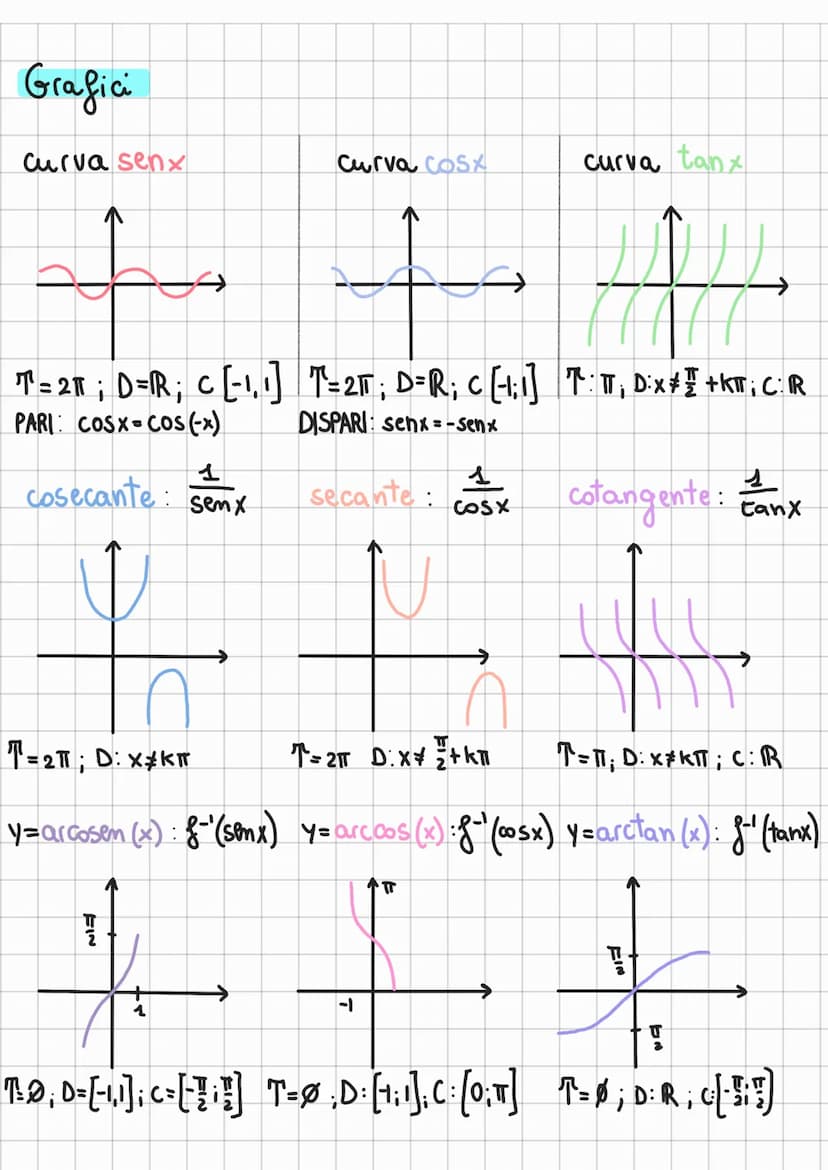 Grafici
curva senx
curva cosx
curva tanx
T=2π ; D=ℝ ; C [-1,1]
T=2π ; D=ℝ ; C [-1;1]
T: π ; D: x≠π/2 +kπ ; C: ℝ
PARI: cosx=cos(-x)
DISPARI: senx=-senx
cosecante: 1/senx
secante: 1/cosx
cotangente: 1/tanx
T=2π ; D: x≠kπ
T=2π D: x≠ π/2+kπ
T=π ; D: x≠kπ ; C: ℝ
y=arcosen(x): f⁻¹(senx)
y=arccos(x): f⁻¹(cosx)
y=arctan(x): f⁻¹(tanx)
π/2
1
π
-1
π/2
π/2
T=∅ ; D=[-1,1] ; C=[-π/2 ; π/2]
T=∅ ; D: [-1;1] ; C: [0;π]
T=∅ ; D: ℝ ; C:[-π/2 ; π/2]